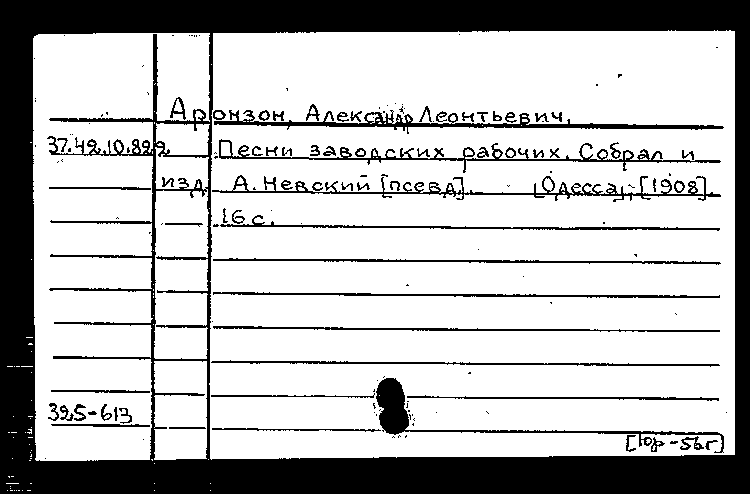 Аронзон, Александр Леонтьевич.
37.42.10.822 Песни заводских рабочих. Собрал и
изд. А. Невский [псевд]. [Одесса], [1908].
16 с.
325-613
[Юр - 56г]